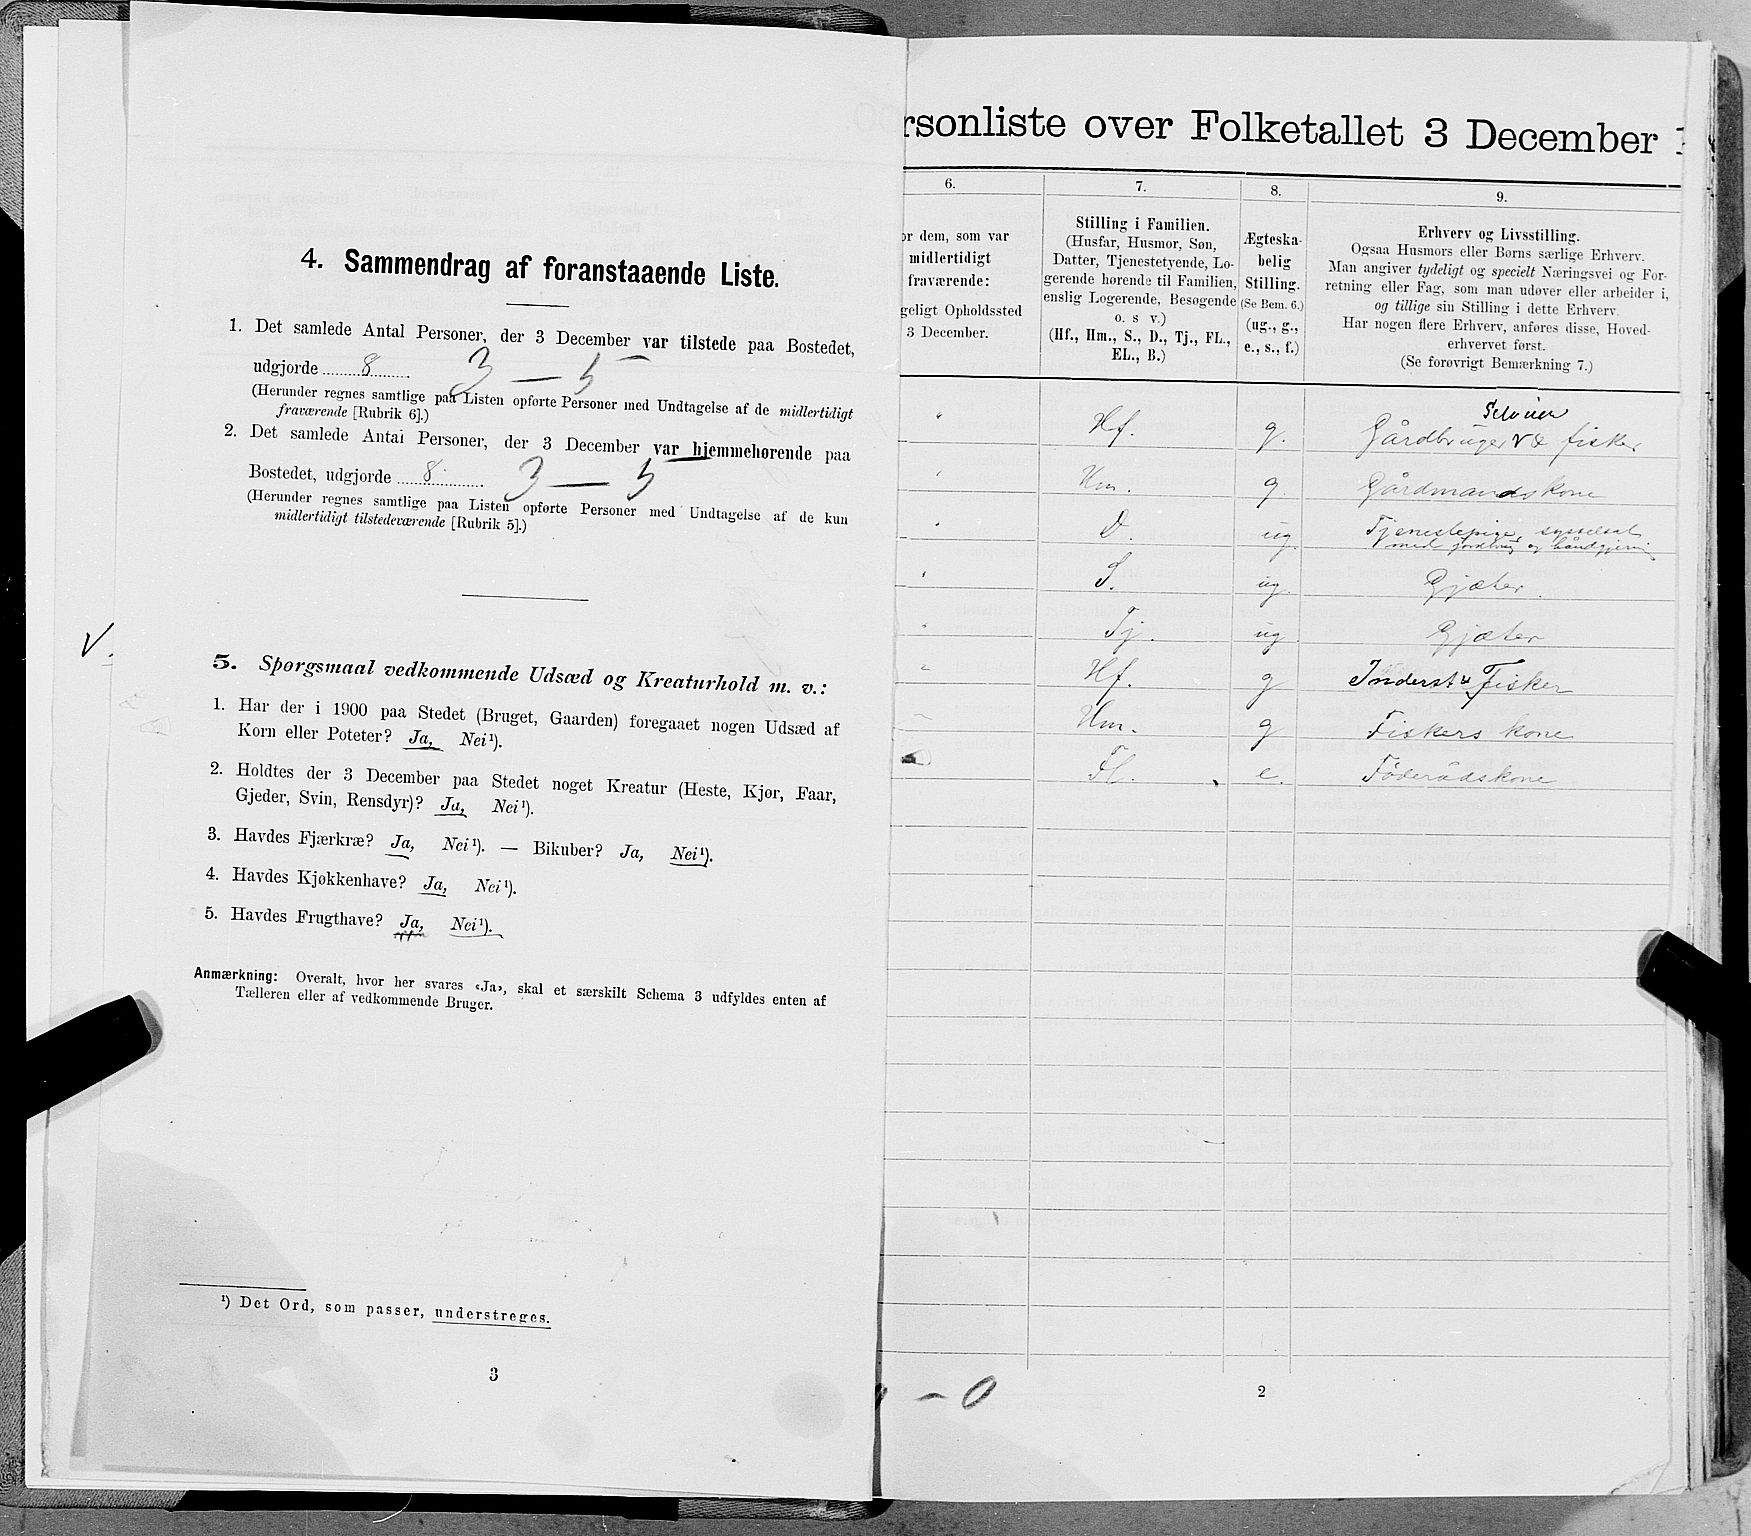 4. Sammendrag af foranstaaende Liste.
1. Det samlede Antal Personer, der 3 December var tilstede paa Bostedet,
udgjorde 8 3 — 5
(Herunder regnes samtlige paa Listen opførte Personer med Undtagelse af de midlertidigt
fraværende [Rubrik 6].)
2. Det samlede Antal Personer, der 3 December var hjemmehørende paa
Bostedet, udgjorde 8 3 — 5
(Herunder regnes samtlige paa Listen opførte Personer med Undtagelse af de kun
midlertidigt tilstedeværende [Rubrik 5].)
V.
5. Sporgsmaal vedkommende Udsæd og Kreaturhold m. v.:
1. Har der i 1900 paa Stedet (Bruget, Gaarden) foregaaet nogen Udsæd af
Korn eller Poteter? Ja, Nei¹).
2. Holdtes der 3 December paa Stedet noget Kreatur (Heste, Kjør, Faar,
Gjeder, Svin, Rensdyr)? Ja, Nei¹).
3. Havdes Fjærkræ? Ja, Nei¹). — Bikuber? Ja, Nei¹).
4. Havdes Kjøkkenhave? Ja, Nei¹).
5. Havdes Frugthave? Ja, Nei¹).
Anmærkning: Overalt, hvor her svares «Ja», skal et særskilt Schema 3 udfyldes enten af
Tælleren eller af vedkommende Bruger.
¹) Det Ord, som passer, understreges.
3
rsonliste over Folketallet 3 December
6. 7. 8. 9.
or dem, som var
midlertidigt
fraværende:
geligt Opholdssted
3 December.
Stilling i Familien.
(Husfar, Husmor, Søn,
Datter, Tjenestetyende, Lo-
gerende hørende til Familien,
enslig Logerende, Besøgende
o. s v.)
(Hf., Hm., S., D., Tj., FL.,
EL., B.)
Ægteska-
belig
Stilling.
(Se Bem. 6.)
(ug., g.,
e., s., f.)
Erhverv og Livsstilling.
Ogsaa Husmors eller Børns særlige Erhverv.
Man angiver tydeligt og specielt Næringsvei og For-
retning eller Fag, som man udøver eller arbeider i,
og tillige sin Stilling i dette Erhverv.
Har nogen flere Erhverv, anføres disse, Hoved-
erhvervet først.
(Se forøvrigt Bemærkning 7.)
Selveier
" Hf. g. Gårdbruger & fisker
" Hm. g. Gårdmandskone
" D. ug. Tjenestepige, sysselsat
med jordbrug og håndgjerning
" S. ug. Gjæter.
" Tj. ug Gjæter
" Hf. g Inderst & Fisker
" Hm. g Fiskers kone
Fl. e. Föderådskone
— 0
2